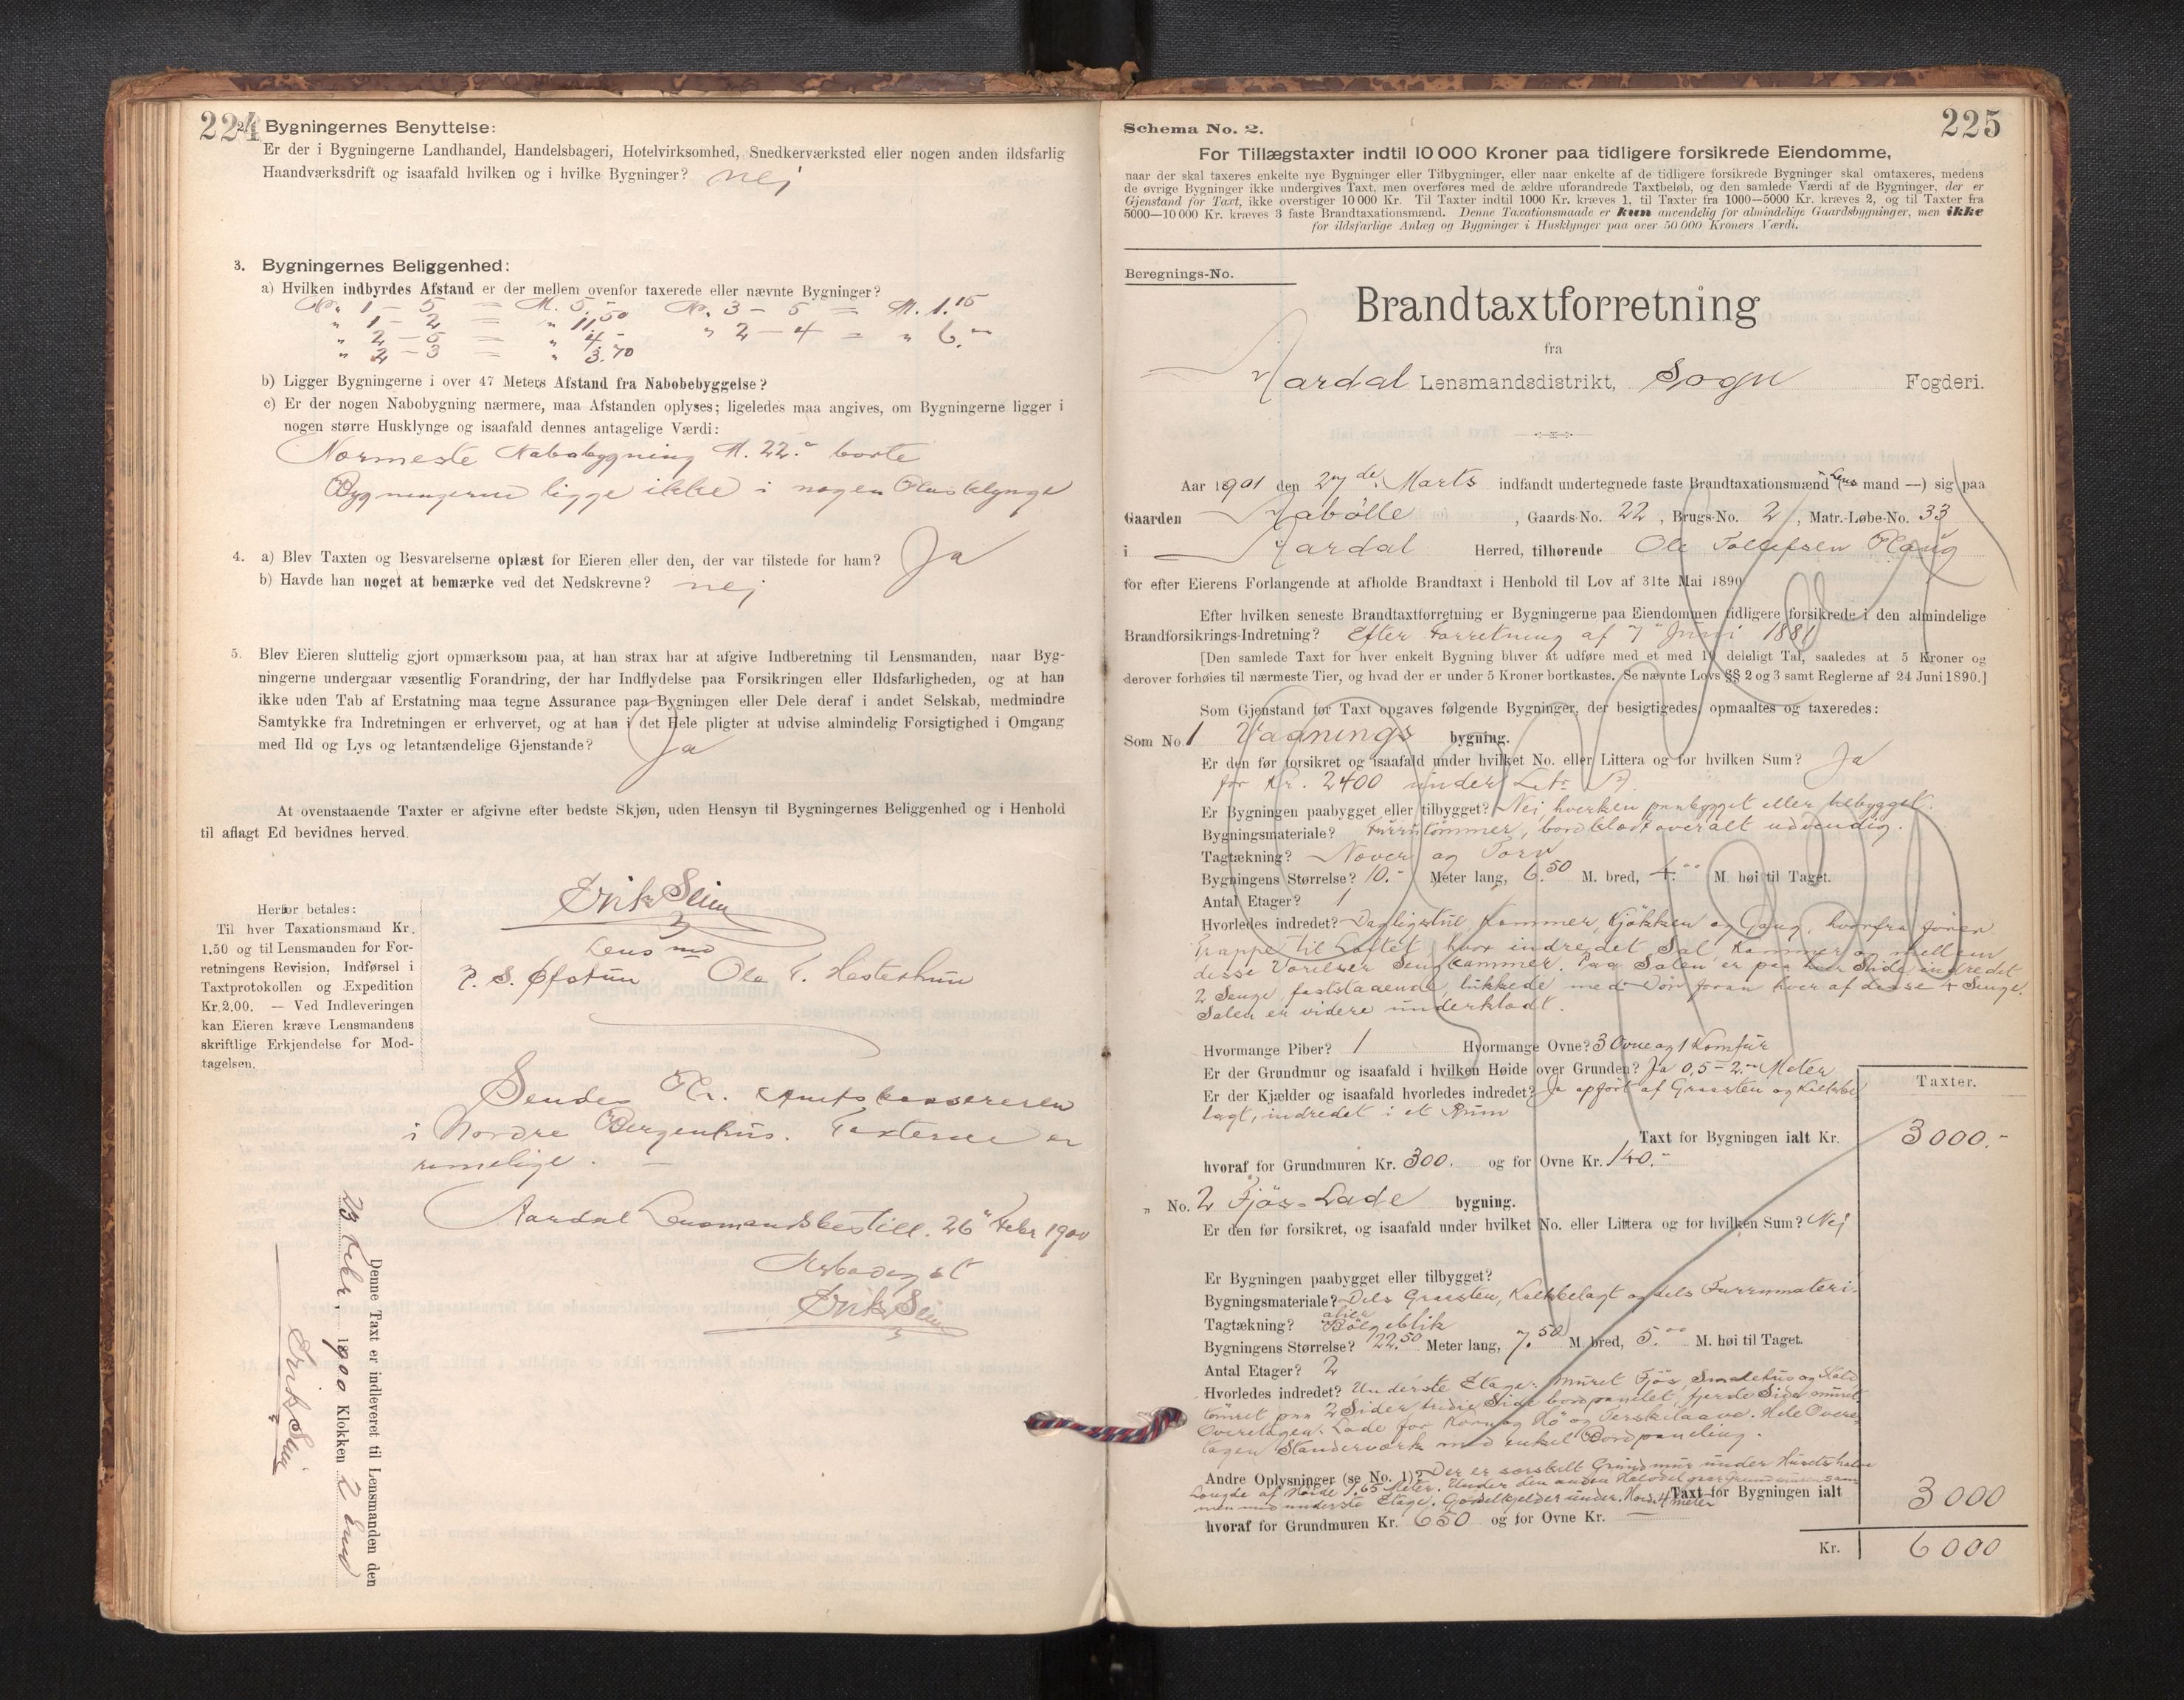 224
2. Bygningernes Benyttelse:
Er der i Bygningerne Landhandel, Handelsbageri, Hotelvirksomhed, Snedkerværksted eller nogen anden ildsfarlig
Haandværksdrift og isaafald hvilken og i hvilke Bygninger? nej
3. Bygningernes Beliggenhed:
a) Hvilken indbyrdes Afstand er der mellem ovenfor taxerede eller nævnte Bygninger?
No. 1 - 5 = M. 5.- No. 3 - 5 = M. 1.15
" 1 - 2 = " 11.50 " 2 - 4 = " 6.-
" 2 - 5 = " 4.-
" 2 - 3 = " 3.70
b) Ligger Bygningerne i over 47 Meters Afstand fra Nabobebyggelse?
c) Er der nogen Nabobygning nærmere, maa Afstanden oplyses; ligeledes maa angives, om Bygningerne ligger i
nogen større Husklynge og isaafald dennes antagelige Værdi:
Nærmeste Nabobygning M. 22.- borte
Bygningerne ligge ikke i nogen Husklynge
4. a) Blev Taxten og Besvarelserne oplæst for Eieren eller den, der var tilstede for ham? Ja
b) Havde han noget at bemærke ved det Nedskrevne? nej
5. Blev Eieren sluttelig gjort opmærksom paa, at han strax har at afgive Indberetning til Lensmanden, naar Byg-
ningerne undergaar væsentlig Forandring, der har Indflydelse paa Forsikringen eller Ildsfarligheden, og at han
ikke uden Tab af Erstatning maa tegne Assurance paa Bygningen eller Dele deraf i andet Selskab, medmindre
Samtykke fra Indretningen er erhvervet, og at han i det Hele pligter at udvise almindelig Forsigtighed i Omgang
med Ild og Lys og letantændelige Gjenstande? Ja
At ovenstaaende Taxter er afgivne efter bedste Skjøn, uden Hensyn til Bygningernes Beliggenhed og i Henhold
til aflagt Ed bevidnes herved.
Erik Seim
Lensmd
P. S. Øfstun Ole T. Hestethun
Herfor betales:
Til hver Taxationsmand Kr.
1.50 og til Lensmanden for For-
retningens Revision, Indførsel i
Taxtprotokollen og Expedition
Kr. 2.00. — Ved Indleveringen
kan Eieren kræve Lensmandens
skriftlige Erkjendelse for Mod-
tagelsen.
Sendes Hr. Amtskassereren
i Nordre Bergenhus. Taxterne er
rimelige.
Aardal Lensmandsbestill. 26 Febr 1900
Ærbødigst
Erik Seim
Denne Taxt er indleveret til Lensmanden den
23 Febr 1900 Klokken 2 Emd
Erik Seim
225
Schema No. 2.
For Tillægstaxter indtil 10 000 Kroner paa tidligere forsikrede Eiendomme,
naar der skal taxeres enkelte nye Bygninger eller Tilbygninger, eller naar enkelte af de tidligere forsikrede Bygninger skal omtaxeres, medens
de øvrige Bygninger ikke undergives Taxt, men overføres med de ældre uforandrede Taxtbeløb, og den samlede Værdi af de Bygninger, der er
Gjenstand for Taxt, ikke overstiger 10 000 Kr. Til Taxter indtil 1000 Kr. kræves 1, til Taxter fra 1000—5000 Kr. kræves 2, og til Taxter fra
5000—10 000 Kr. kræves 3 faste Brandtaxationsmænd. Denne Taxationsmaade er kun anvendelig for almindelige Gaardsbygninger, men ikke
for ildsfarlige Anlæg og Bygninger i Husklynger paa over 50 000 Kroners Værdi.
Beregnings-No.
Brandtaxtforretning
fra
Aardal Lensmandsdistrikt, Sogn Fogderi.
Aar 1901 den 27de Marts indfandt undertegnede faste Brandtaxationsmænd (Lens mand —) sig paa
Gaarden Nabölle, Gaards-No. 22, Brugs-No. 2, Matr.-Løbe-No. 33
i Aardal Herred, tilhørende Ole Tollefsen Haug
for efter Eierens Forlangende at afholde Brandtaxt i Henhold til Lov af 31te Mai 1890
Efter hvilken seneste Brandtaxtforretning er Bygningerne paa Eiendommen tidligere forsikrede i den almindelige
Brandforsikrings-Indretning? Efter Forretning af 7 Juni 1881
[Den samlede Taxt for hver enkelt Bygning bliver at udføre med et med 10 deleligt Tal, saaledes at 5 Kroner og
derover forhøies til nærmeste Tier, og hvad der er under 5 Kroner bortkastes. Se nævnte Lovs §§ 2 og 3 samt Reglerne af 24 Juni 1890.]
Som Gjenstand for Taxt opgaves følgende Bygninger, der besigtigedes, opmaaltes og taxeredes:
Som No. 1 Vaanings bygning.
Er den før forsikret og isaafald under hvilket No. eller Littera og for hvilken Sum? Ja
for Kr. 2400 under Litr A.
Er Bygningen paabygget eller tilbygget? Nei, hverken paabygget eller tilbygget.
Bygningsmateriale? Furrutömmer, bordklædt overalt udvendig.
Tagtækning? Næver og Torv
Bygningens Størrelse? 10.- Meter lang, 6.50 M. bred, 4.00 M. høi til Taget.
Antal Etager? 1
Hvorledes indredet? Dagligstue, Kammer, Kjökken og Gang, hvorfra förer
Trappe til Loftet, hvor indredet Sal, Kammer og mellem
disse Værelser Sengkammer. Paa Salen er paa hver Side indredet
2 Senge, faststaaende, lukkede med Dör foran hver af disse 4 Senge.
Salen er videre underklædt.
Hvormange Piber? 1 Hvormange Ovne? 3 Ovne og 1 Komfur
Er der Grundmur og isaafald i hvilken Høide over Grunden? Ja 0,5 - 2.- Meter
Er der Kjælder og isaafald hvorledes indredet? Ja opfört af Graasten og Kalkbe
lagt, indredet i et Rum
Taxter.
Taxt for Bygningen ialt Kr. 3000.-
hvoraf for Grundmuren Kr. 300. og for Ovne Kr. 140.-
" No. 2 Fjös- Lade bygning.
Er den før forsikret, og isaafald under hvilket No. eller Littera og for hvilken Sum? Nej
Er Bygningen paabygget eller tilbygget?
Bygningsmateriale? Dels Graasten, Kalkbelagt og dels Furrumateri-
alier
Tagtækning? Bölgeblik
Bygningens Størrelse? 22.50 Meter lang, 7.50 M. bred, 5.00 M. høi til Taget.
Antal Etager? 2
Hvorledes indredet? Underste Etage: muret Fjös, Smalehus og Stald
tömret paa 2 Sider, tredie Side bordpanelet, fjerde Side muret.
Overetagen: Lade for Korn og Hö og Terskelaave. Hele Overe-
tagen Standerværk med enkel Bordpaneling.
Andre Oplysninger (se No. 1)? Der er særskilt Grundmur under Husets halve
Længde af Höide 1,65 Meter. Under den anden Halvdel gaar Grundmuren sam
men med underste Etage. Gjödselkjelder under. Höide 4 Meter
Taxt for Bygningen ialt 3000
hvoraf for Grundmuren Kr. 650 og for Ovne Kr. —
Kr. 6000